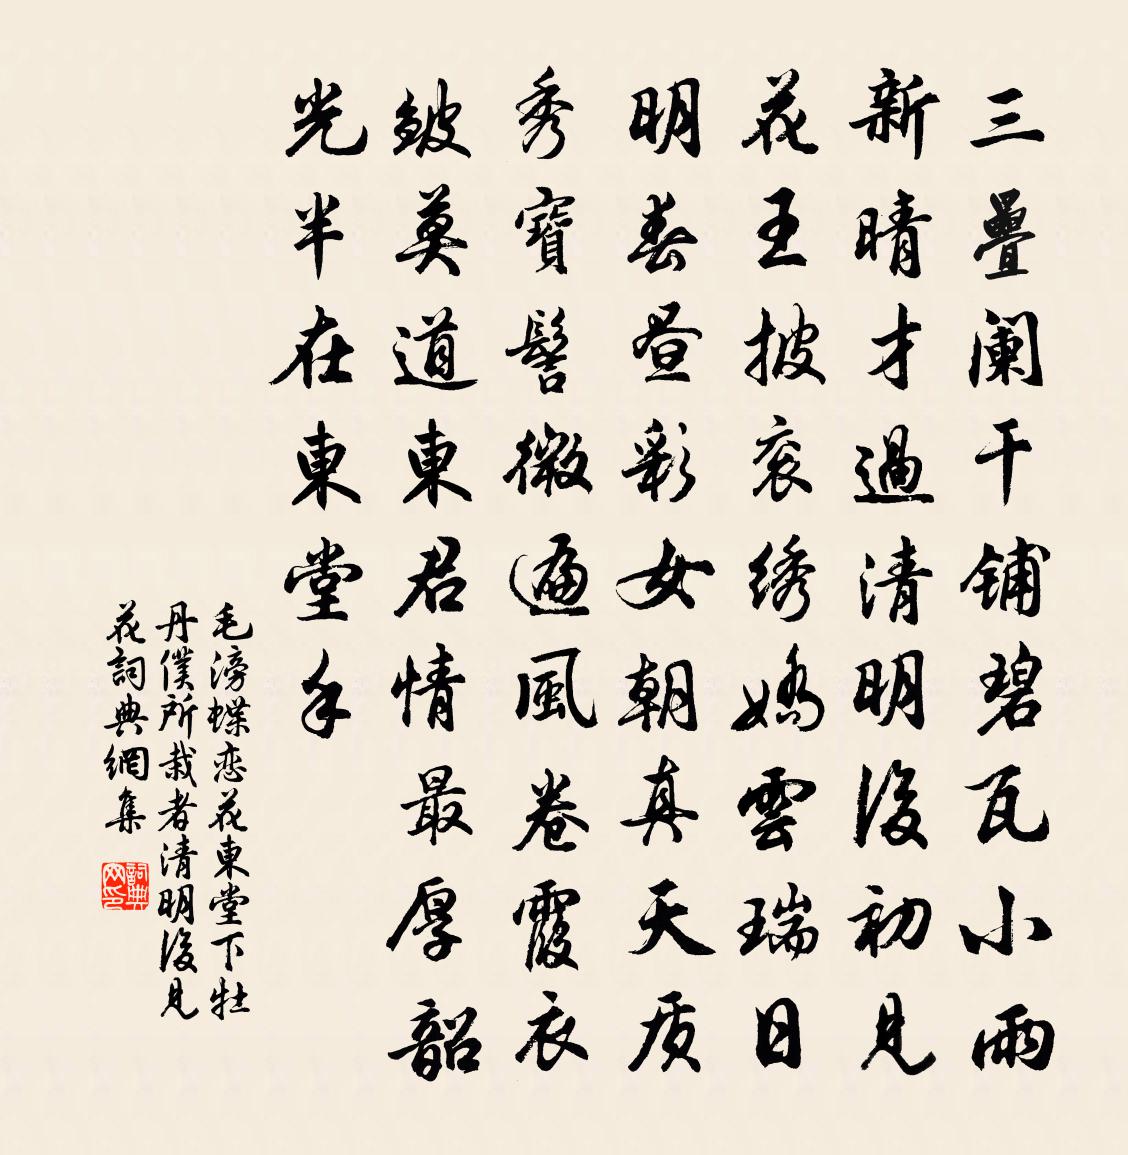 三疊阑干铺碧瓦小雨
新晴才過清明後初見
花王披衮绣嬌雲瑞日
明春昼彩女朝真天质
秀寶髻微遍風卷霞衣
皴莫道東君情最厚韶
光半在東堂手
毛滂蝶恋花東堂下牡
丹僕所栽者清明後見
花詞典網集
詞典网印